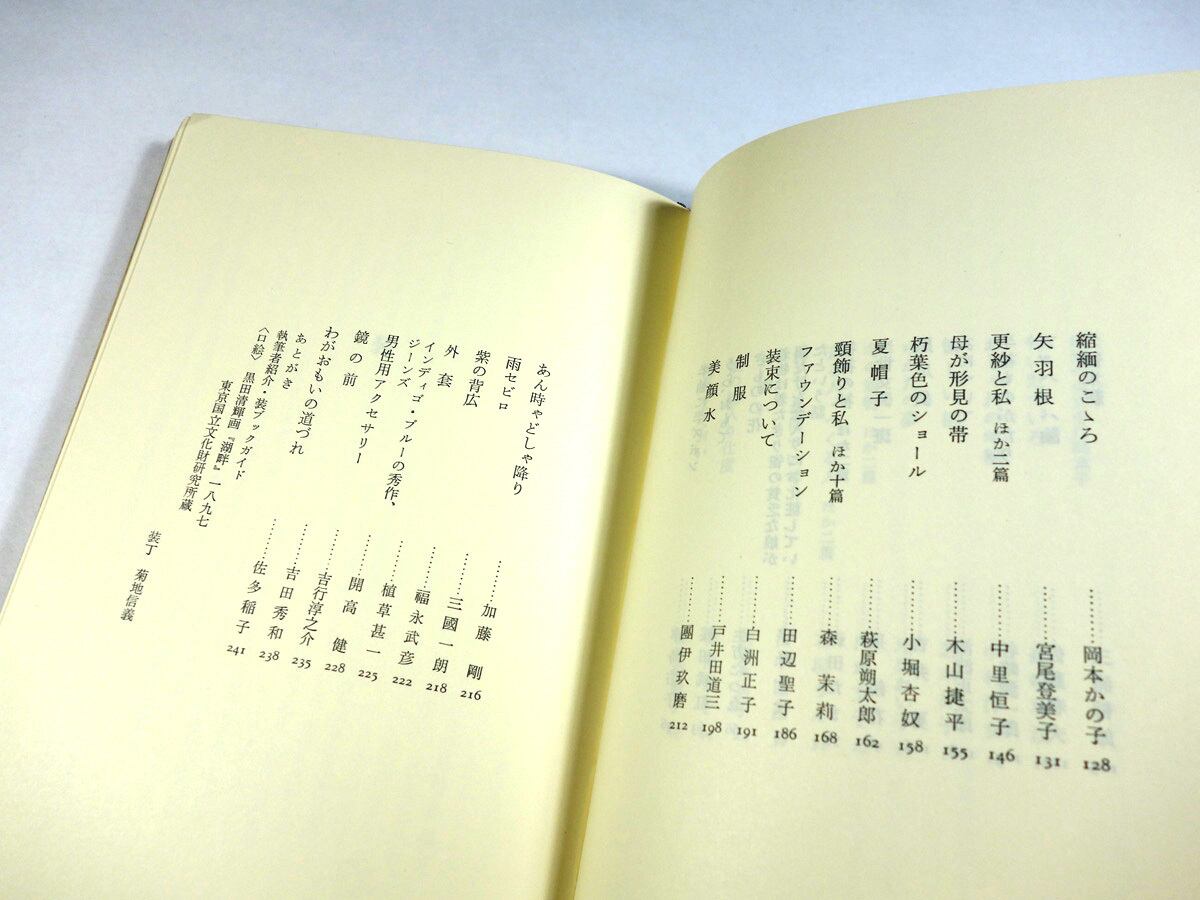 縮緬のこゝろ……岡本かの子 128
矢羽根……宮尾登美子 131
更紗と私 ほか二篇……中里恒子 146
母が形見の帯……木山捷平 155
朽葉色のショール……小堀杏奴 158
夏帽子……萩原朔太郎 162
頸飾りと私 ほか十篇……森茉莉 168
ファウンデーション……田辺聖子 186
装束について……白洲正子 191
制服……戸井田道三 198
美顔水……團伊玖磨 212
あん時ゃどしゃ降り……加藤剛 216
雨セビロ……三國一朗 218
紫の背広……福永武彦 222
外套……植草甚一 225
インディゴ・ブルーの秀作、
ジーンズ……開高健 228
男性用アクセサリー……吉行淳之介 235
鏡の前……吉田秀和 238
わがおもいの道づれ……佐多稲子 241
あとがき
執筆者紹介・装ブックガイド
〈口絵〉黒田清輝画『湖畔』一八九七
東京国立文化財研究所蔵
装丁 菊地信義